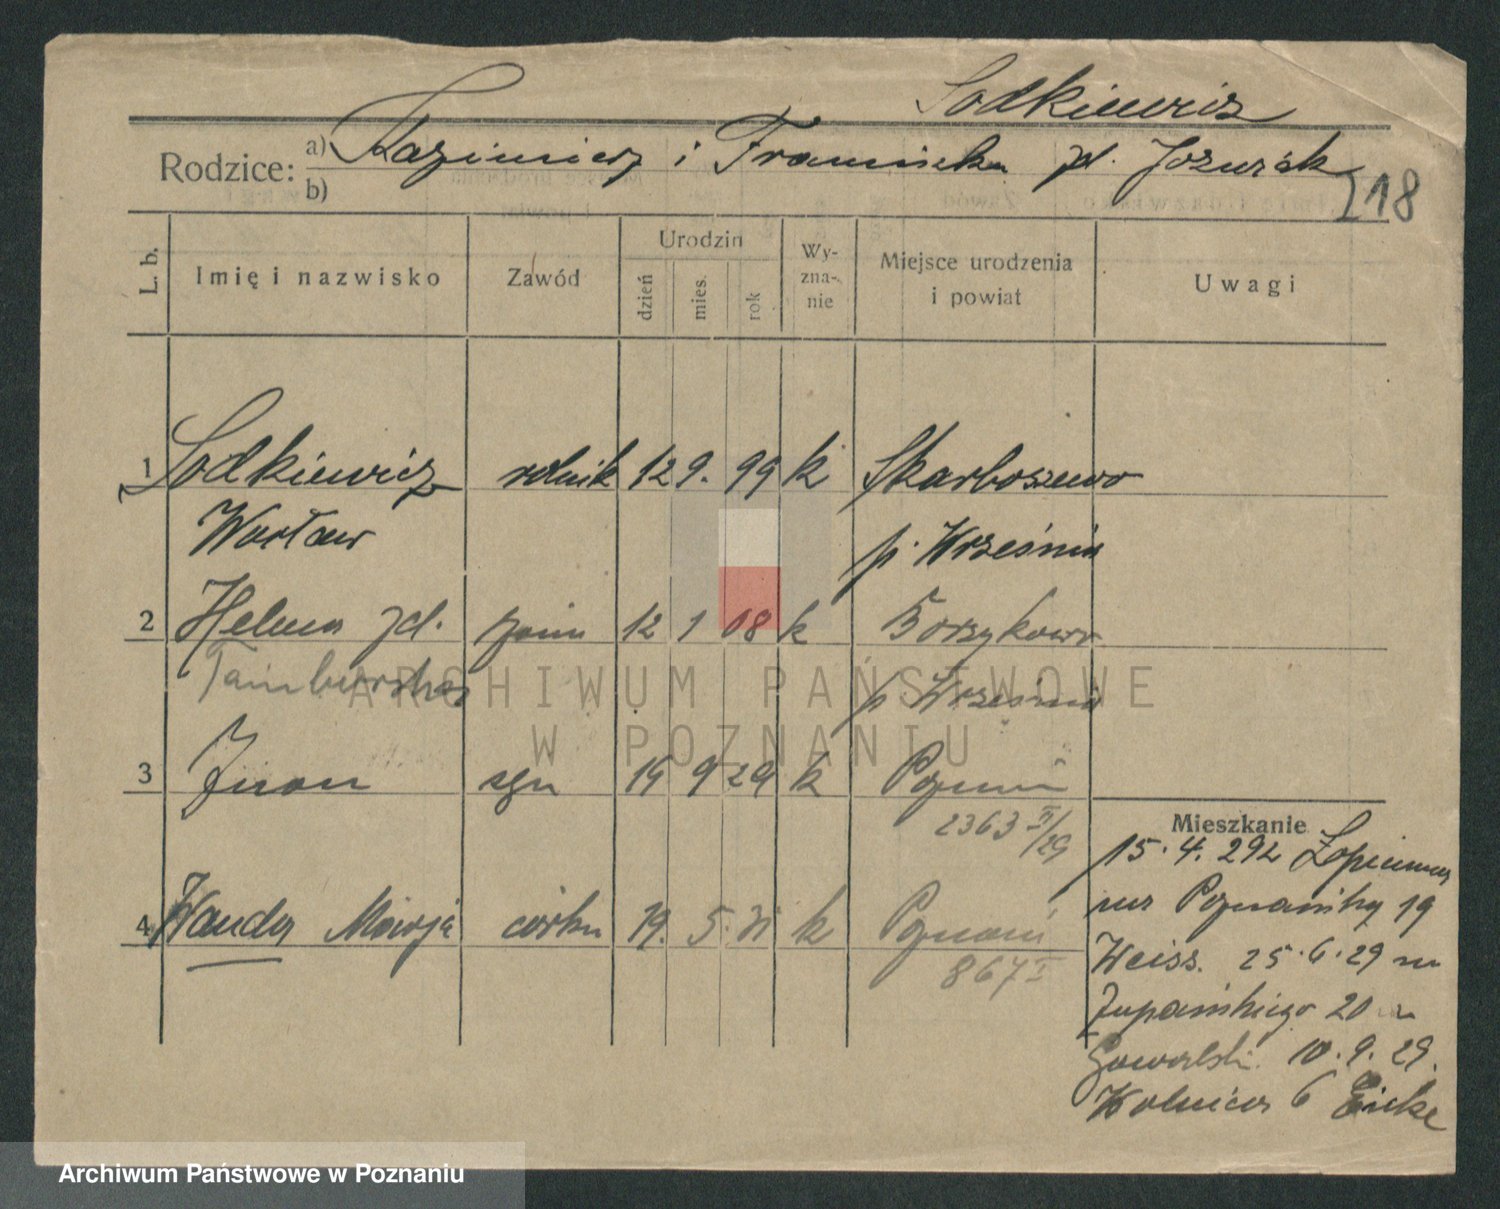 Sodkiewicz
Rodzice: a) Kazimierz i Franciszka zd. Józwiak
b)
218
L. b. Imię i nazwisko Zawód Urodzin dzień mies. rok Wy-zna-nie Miejsce urodzenia i powiat Uwagi
1 Sodkiewicz rolnik 12 9. 99 k Skarboszewo
Wacław p. Września
2 Helena zd. żona 12 1 08 k Borzykowo
Tamborska p. Września
ARCHIWUM PAŃSTWOWE
W POZNANIU
3 Jan syn 14 9 29 k Poznań
2363 II/29
4 Wanda Maria córka 19. 5. 31 k Poznań
867 I
Mieszkanie
15. 4. 29 z
Poznańska 19
Weiss. 25. 6. 29 na
Żupańskiego 20
10. 9. 29.
Wolnica 6
Archiwum Państwowe w Poznaniu